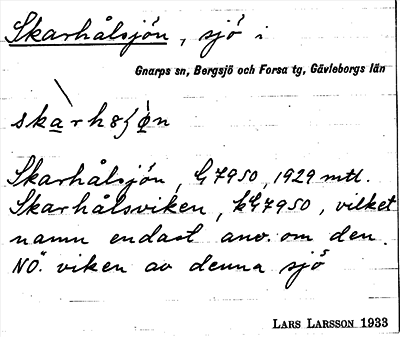 Skarhålsjön, sjö i
Gnarps sn, Bergsjö och Forsa tg, Gävleborgs län
Skarhålsjön, 1929 mtl.
Skarhålsviken, vilket
namn endast anv. om den
NÖ. viken av denna sjö
LARS LARSSON 1933